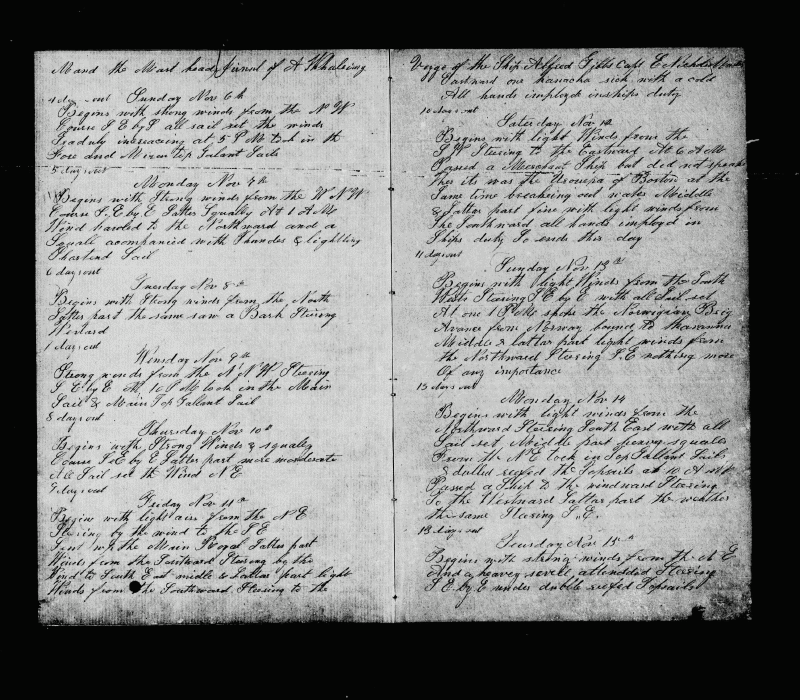 Mand the Mast head, Jirnel of A Whaleing
4 days out Sunday Nov 6th
Begins with strong winds from the N W
Course S E by S all sail set the winds
Graduly increacing at 5 P M took in the
Fore and Mizen top Galant Sails
5 days out
Monday Nov 7th
Begins with Strong winds from the W N W
Course S. E by E Latter Squaly At 1 A M
Wind hauled to the Northward and a
Squall acompanied with Thunder & lightling
Shortend Sail
6 days out
Tuesday Nov 8th
Begins with Strong winds from the North
Latter part the same saw a Bark Stering
Westard
7 days out
Wensday Nov 9th
Strong winds from the N N W Steering
S E by E At 10 P M took in the Main
Sail & Main Top Gallant Sail
8 days out
Thursday Nov 10th
Begins with Strong Winds & squaley
Course S E by E Latter part more moderate
All Sail set the Wind N E
9 days out
Friday Nov 11th
Begins with light aers from the N E
Stering by the wind to the S E
Sent up the Main Royal Latter part
Winds from the Eastward Stering by the
Wind to South East midle & Lattar part light
Winds from the Southward Stering to the
Voyge of the Ship Alfred Gibbs Capt E Nichols
Eastward one kanacka sick with a cold
All hands imployd in ships duty
10 days out
Saterday Nov 12
Begins with light Winds from the
S W Steering to the Eastward At 6 A M
Passed a Merchant Ship but did not speak
Her it was the of Boston at the
Same time breaking out water Middle
& Lattar part fine with light winds from
The Southward all hands imployd in
Ships duty So ends this day
11 days out
Sunday Nov 13th
Begins with light Winds from the South
West Stearing S E by E with all Sail set
At one 1 P M spoke the Norwegian Brig
Avance from Norway bound to
Middle & lattar part light winds from
the Northward Steering S. E nothing more
Of any importance
13 days out
Monday Nov 14
Begins with light winds from the
Northward Stearing South East with all
Sail set Middle part heavy squales
From the N E tock in Top Gallant Sails
& dubled reefed the Topsails at 10 A M
Passed a Ship to the windward Steering
To the Westward Lattar part the wether
the same Steering S. E.
13 days out
Teusday Nov 15th
Begins with strong winds from the N E
And a heavey swell, attended Stearing
S E by E under double reefed Topsails